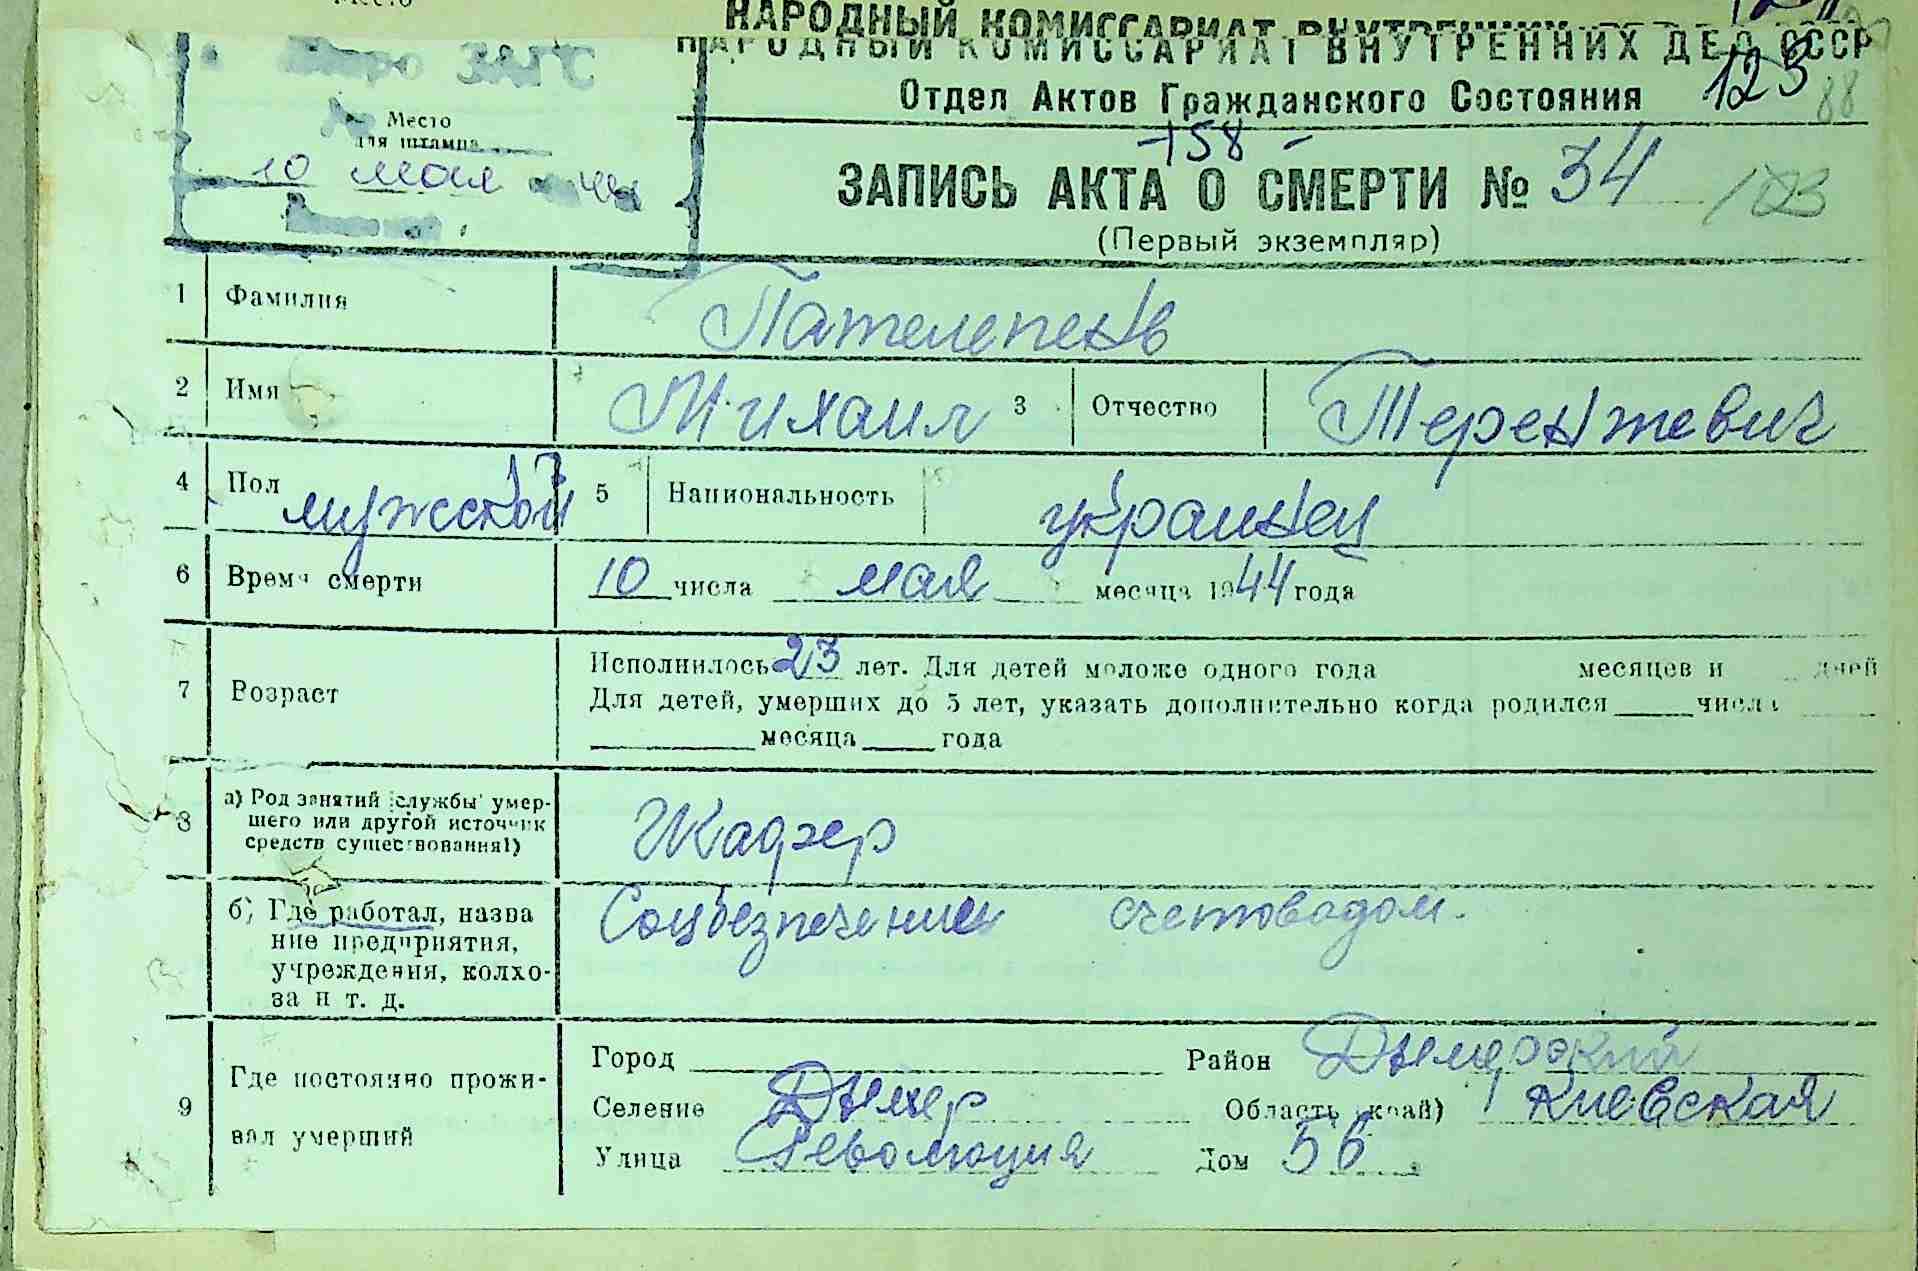 НАРОДНЫЙ КОМИССАРИАТ ВНУТРЕННИХ
НАРОДНЫЙ КОМИССАРИАТ ВНУТРЕННИХ ДЕЛ СССР
Бюро ЗАГС
Отдел Актов Гражданского Состояния 123 88
Место
для штампа
-158-
10 мая 44
ЗАПИСЬ АКТА О СМЕРТИ № 34 /123
(Первый экземпляр)
1 Фамилия
2 Имя Михаил 3 Отчество Терентжевич
4 Пол мужской 5 Национальность украинец
6 Время смерти 10 числа мая месяца 1944 года
7 Возраст Исполнилось 23 лет. Для детей моложе одного года месяцев и дней
Для детей, умерших до 5 лет, указать дополнительно когда родился числа
месяца года
8 а) Род занятий службы умер-
шего или другой источник
средств существования1)
б) Где работал, назва
ние предприятия,
учреждения, колхо-
за и т. д.
Соцбезпечение счетоводом.
9 Где постоянно прожи-
вал умерший
Город Район Дымерский
Селение Дымер Область (край) Киевская
Улица Революция Дом 56